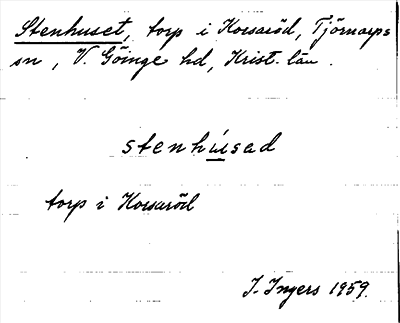 Stenhuset, torp i Korsaröd, Tjörnarps
sn, V. Göinge hd, Krist. län.
stenhúsad
torp i Korsaröd
I. Ingers 1959.